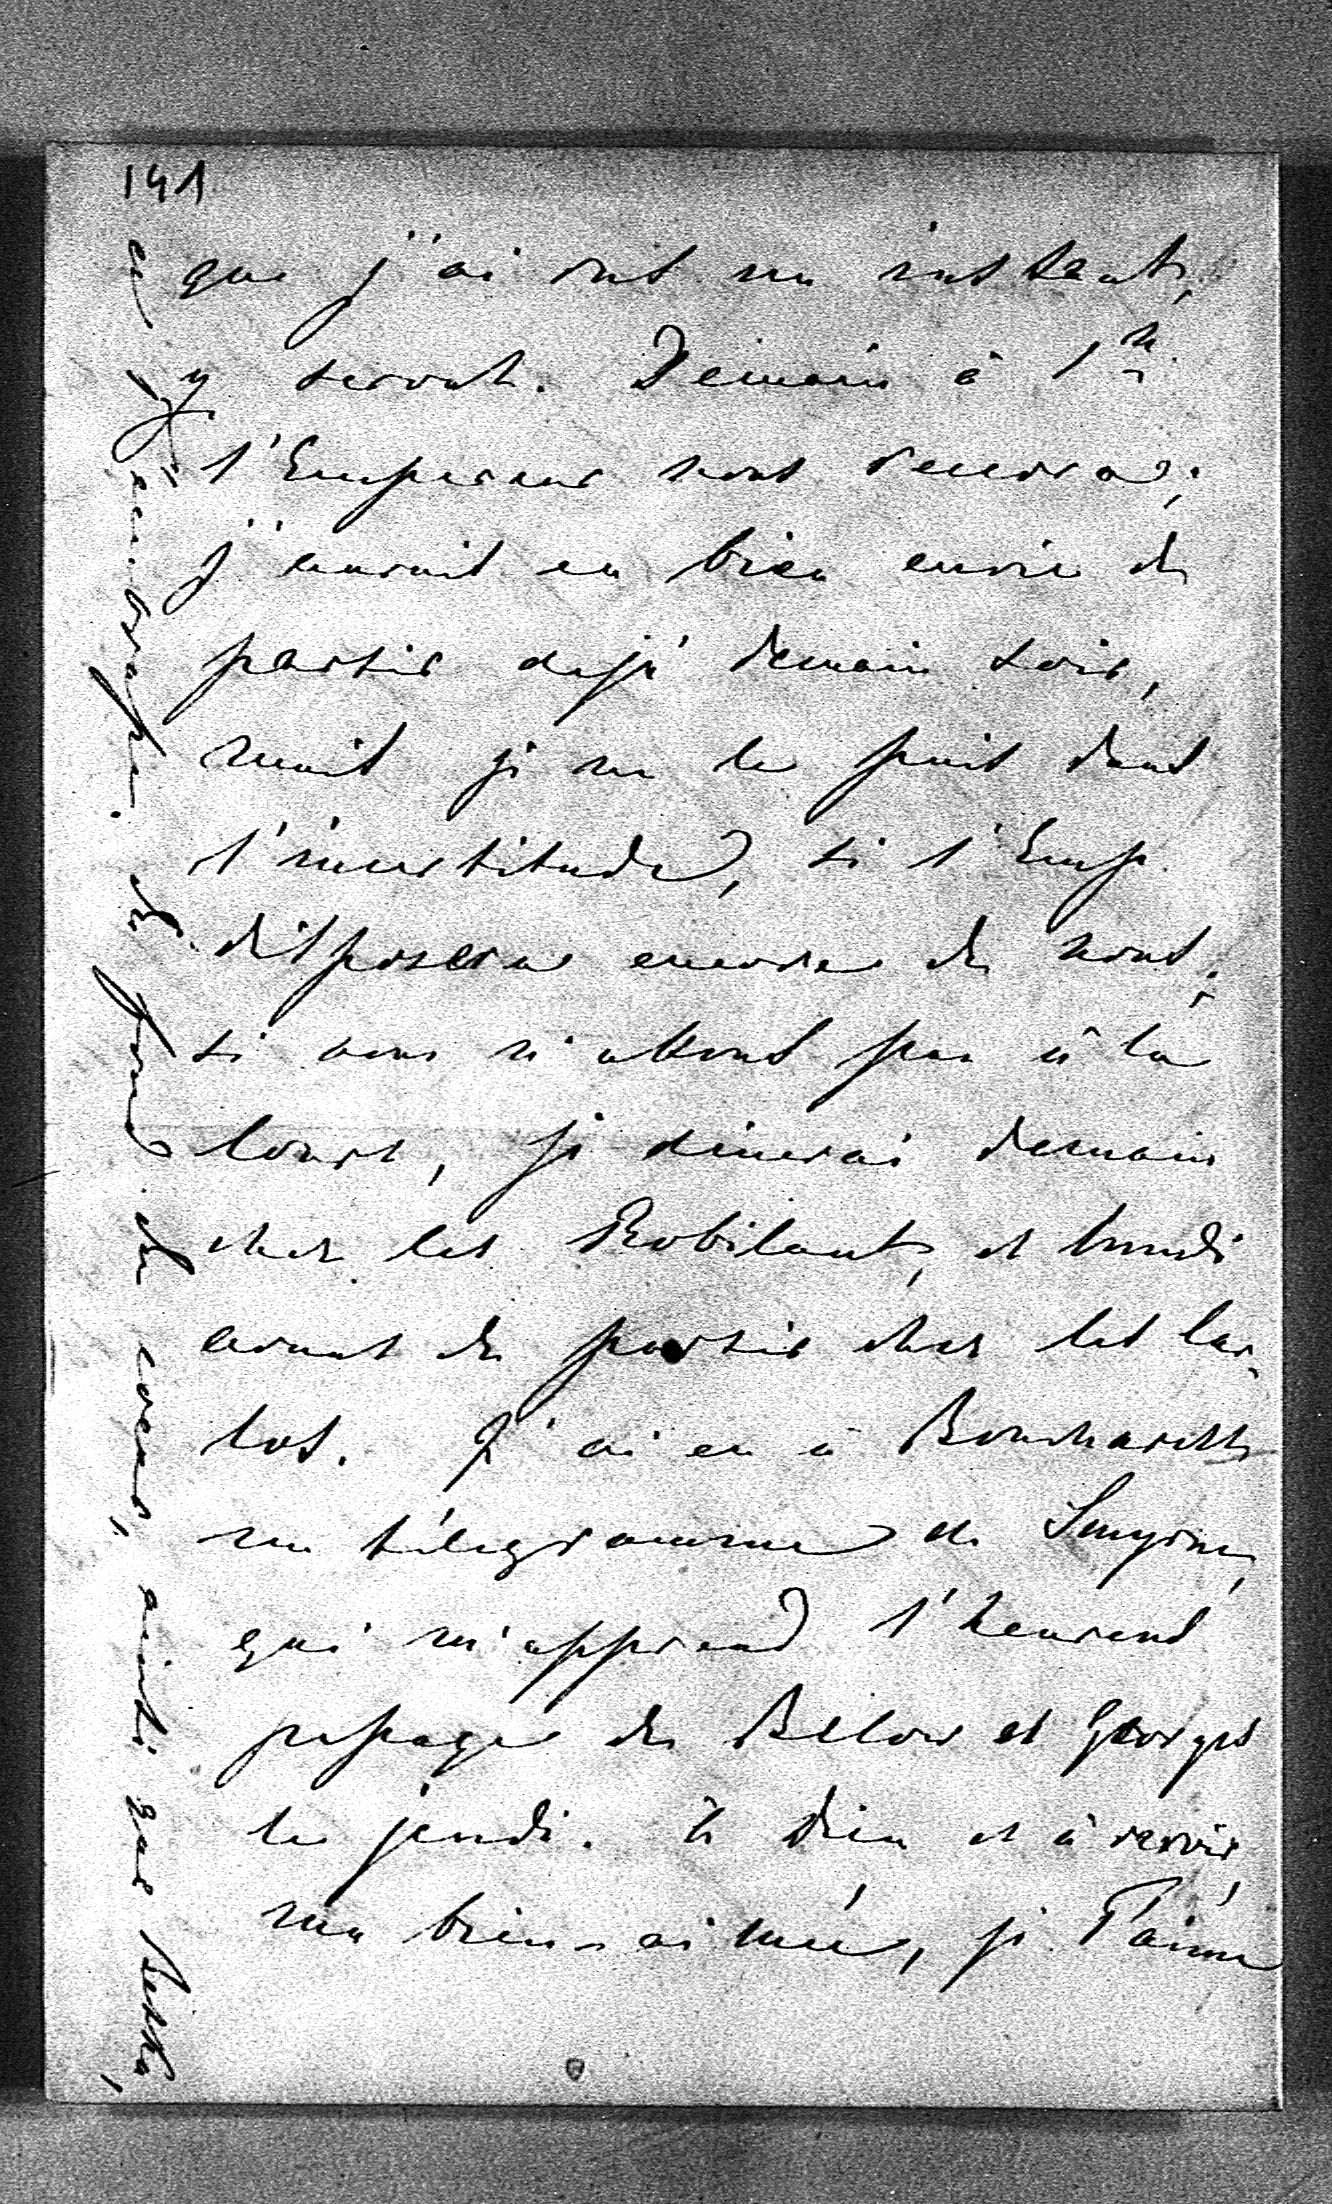 141
que j'ai
y seront. Demain à 1 h.
l'Empereur nous recevra;
j'aurais eu bien envie de
partir déjà demain soir,
mais je ne le puis dans
l'incertitude, si l'Emp.
disposera encore de nous;
si nous n'allons pas à la
Cour, je dinerai demain
chez les Robilant, et lundi
avant de partir chez les Car-
los. J'ai eu à
un télégramme de Smyrne,
qui m'apprend l'heureux
passage de Below et Georges
le jeudi. à Dieu et à revoir,
ma bien-aimée, je T'aime
et T'embrasse du fond du coeur, ainsi que